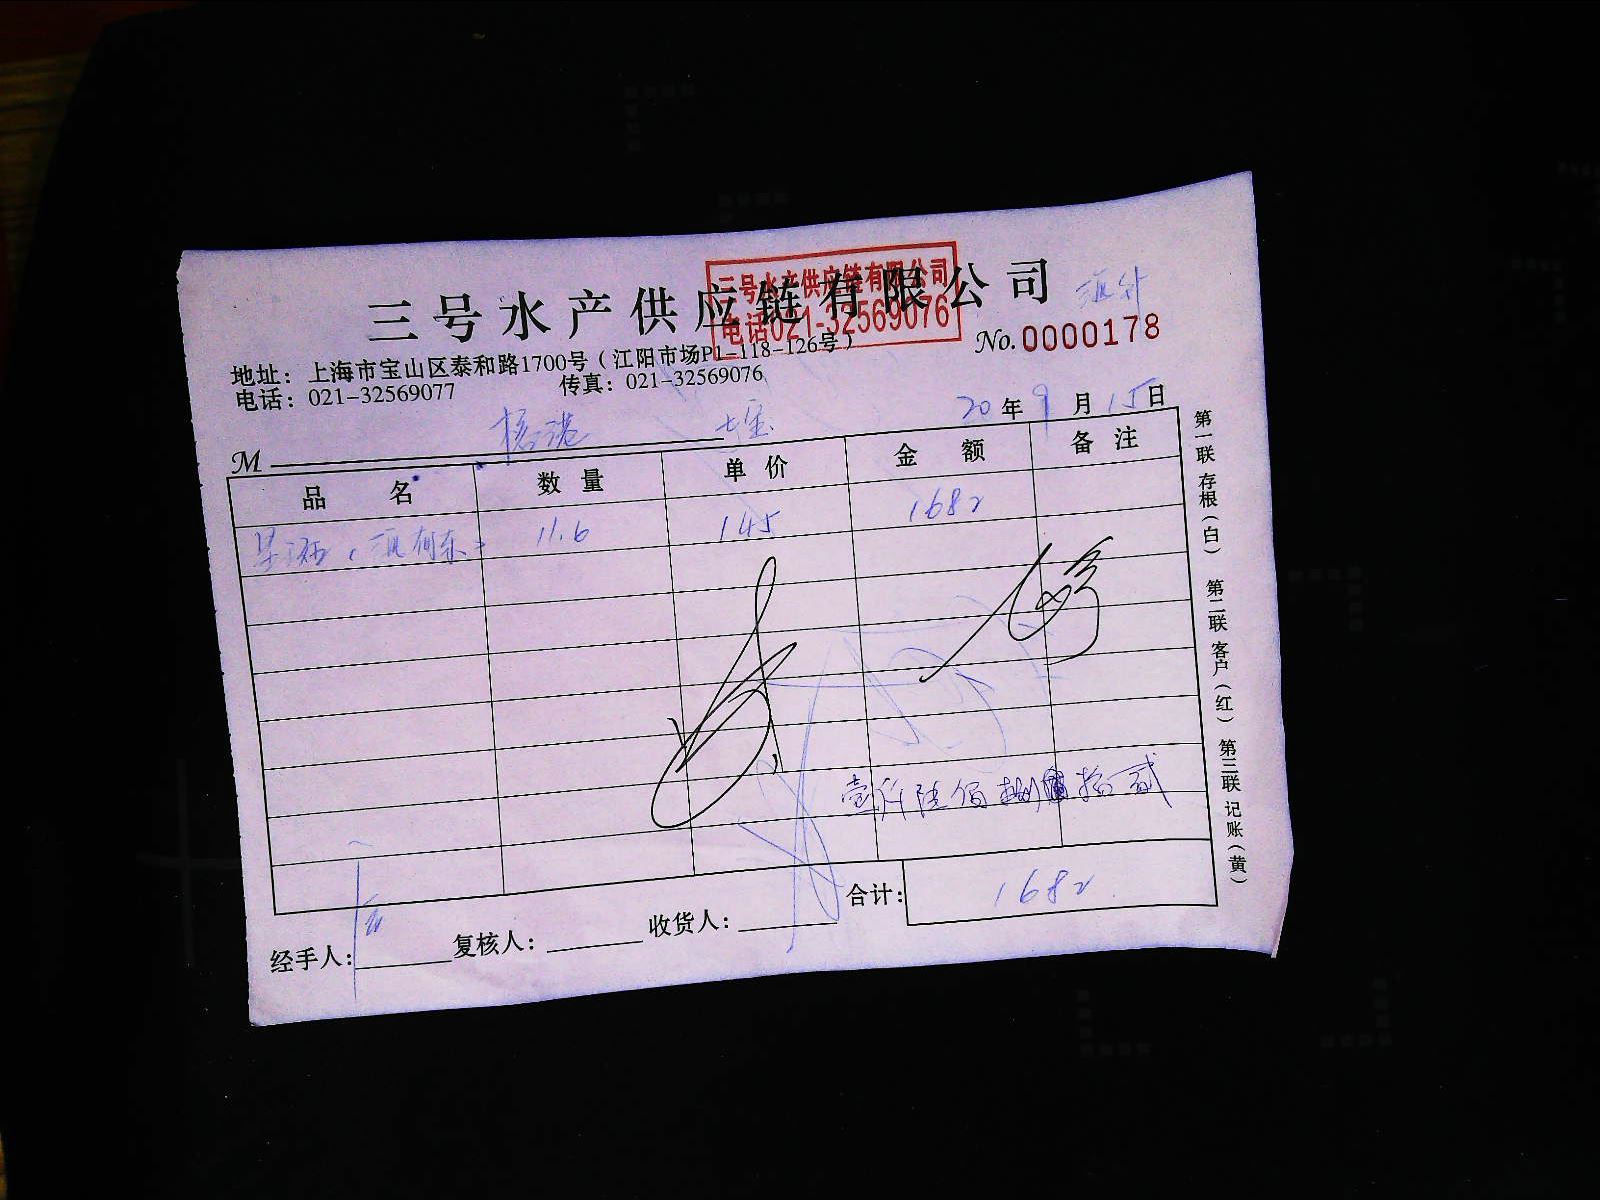 三号水产供应链有限公司
三号水产供应链有限公司
电话021-32569076
No.0000178
地址：上海市宝山区泰和路1700号（江阳市场P1-118-126号）
电话：021-32569077 传真：021-32569076
20年9月15日
M 七宝
品名 数量 单价 金额 备注
11.6 145 1682
壹仟陆佰捌拾贰
合计：1682
经手人： 复核人： 收货人：
第一联存根（白） 第二联客户（红） 第三联记账（黄）